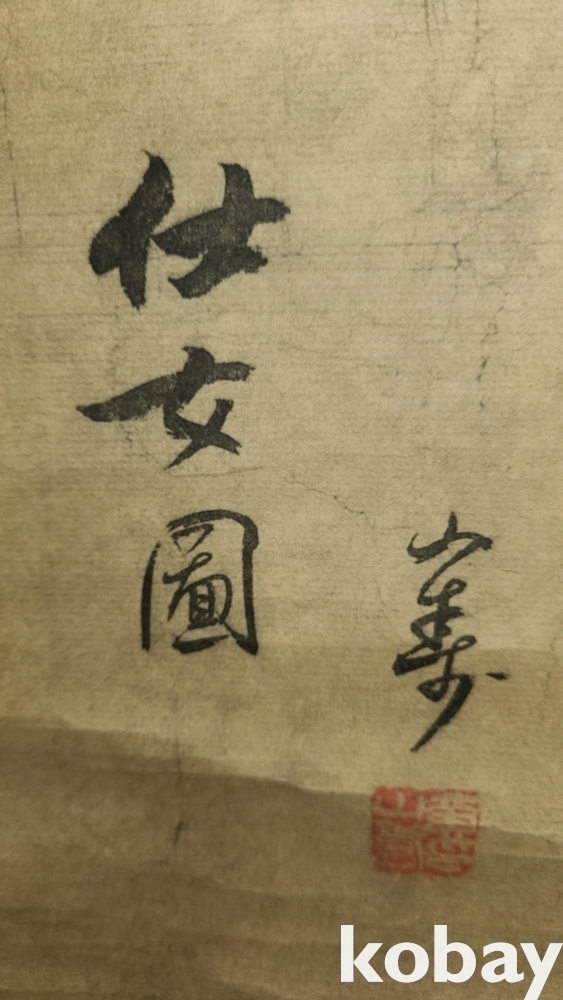 仕女圖
山壽
kobay